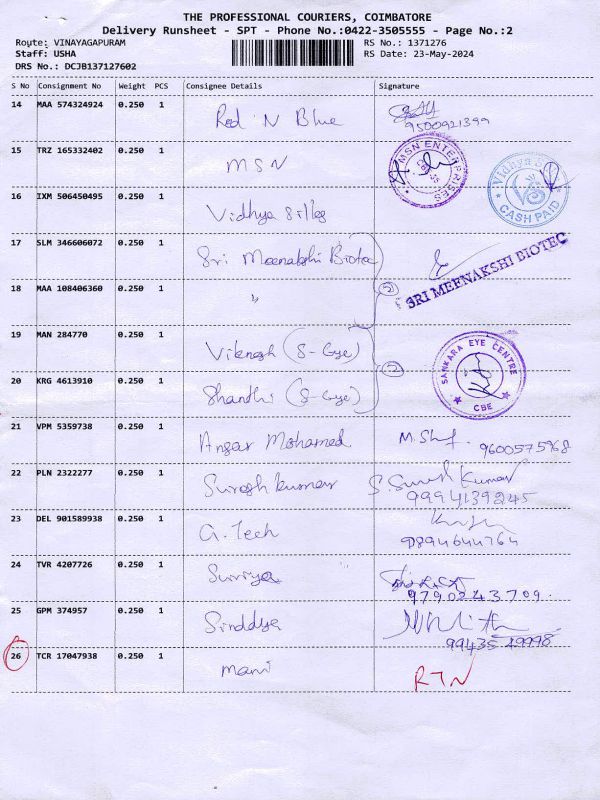 THE PROFESSIONAL COURIERS, COIMBATORE
Delivery Runsheet - SPT - Phone No.:0422-3505555 - Page No.:2
Route: VINAYAGAPURAM RS No.: 1371276
Staff: USHA RS Date: 23-May-2024
DRS No.: DCJB137127602
S No Consignment No Weight PCS Consignee Details Signature
14 MAA 574324924 0.250 1 Red N Blue
9500921399
15 TRZ 165332402 0.250 1 MSN MSN ENTERPRISES
16 IXM 506450495 0.250 1 Vidhya Silks Vidhya CASH PAID
17 SLM 346606072 0.250 1 Sri Meenakshi Biotec
18 MAA 108406360 0.250 1 " 2 SRI MEENAKSHI BIOTEC
19 MAN 284770 0.250 1 Viknesh (S-Eye)
20 KRG 4613910 0.250 1 Shandhi (S-Eye) 2 SANKARA EYE CENTRE CBE
21 VPM 5359738 0.250 1 Ansar Mohamed 9600575968
22 PLN 2322277 0.250 1 Suresh kumar S. Suresh Kumar
9994139245
23 DEL 901589938 0.250 1 G. Tech
9894644764
24 TVR 4207726 0.250 1 Surriya
9790243709
25 GPM 374957 0.250 1 Sinddya
99435 29998
26 TCR 17047938 0.250 1 mani RTN